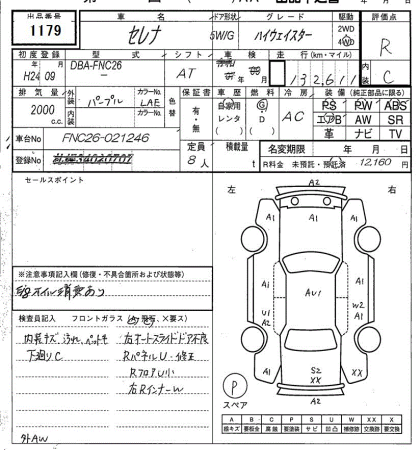 出品番号 車名 ドア形状 グレード 駆動 評価点
1179 セレナ 5W/G ハイウェイスター 2WD 4WD R
初度登録 型式 シフト 車検 走行(km・マイル) C
H24 09 DBA-FNC26 AT 132611
排気量 外装 カラーNo. 色替 保証書 車歴 燃料 冷房 装備(純正部品に限る)
2000 cc パープル LAE 有・無 自家用 レンタ G D AC PS PW ABS
内装 カラーNo. エアB AW SR
車台No FNC26-021246 革 ナビ TV
登録No 定員 積載量 名変期限 年 月 日
8人 t R料金 未預託・預託済 12,160 円
セールスポイント
左 右
A2
A1 A1
A1 A1
AU1
U1 A2 W2 A1
A1 A1
S2 XX
P
スペア
XX A2
※注意事項記入欄(修復・不具合箇所および状態等)
オイル消費あり
検査員記入 フロントガラス
内装キズ 汚れ 右オートスライドドア不良
下廻りC RパネルU・修正
RフロアU小
右RインナーW
外AW
A B C P S U W X XX
線キズ 要板金 腐蝕 要塗装 サビ 凹凸 補修跡 要交換 交換跡